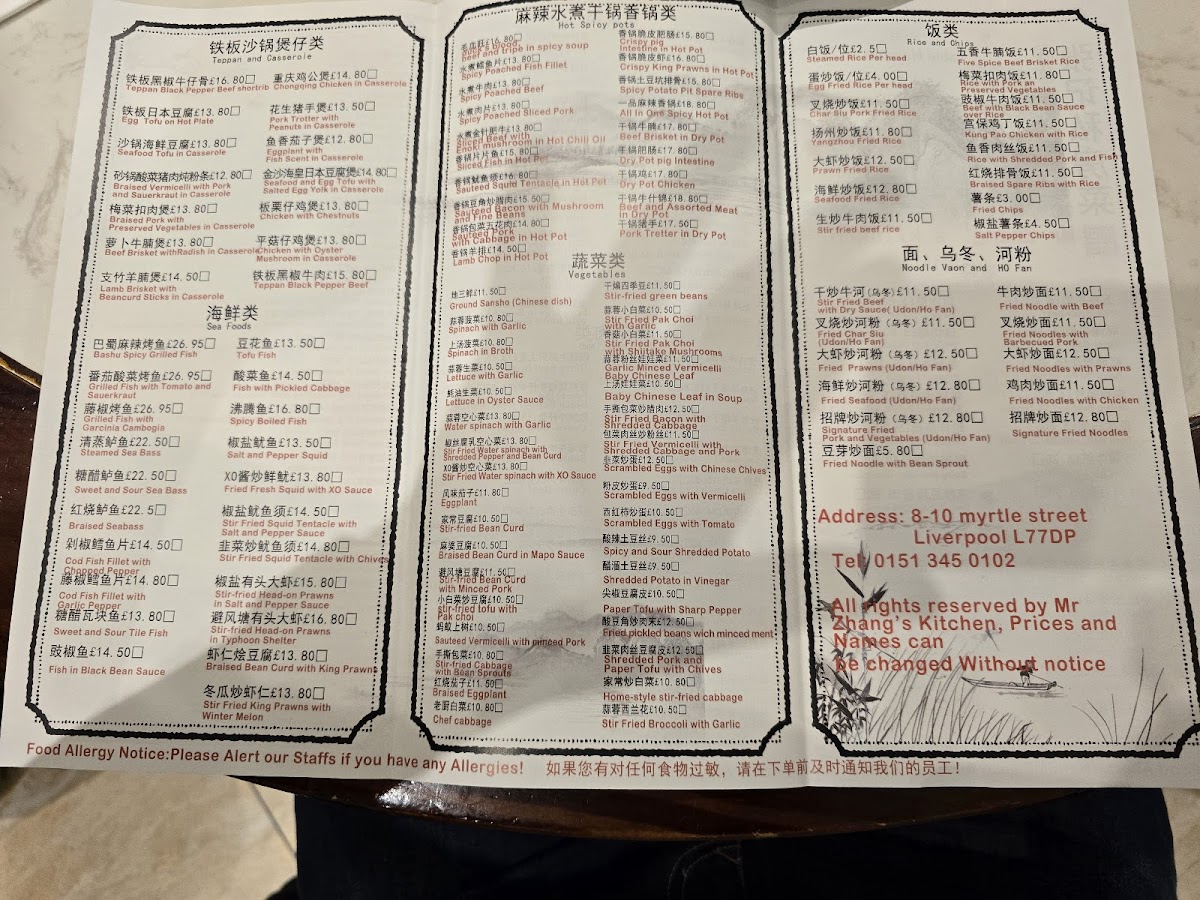 铁板沙锅煲仔类
Teppan and Casserole
铁板黑椒牛仔骨£16.80□
Teppan Black Pepper Beef shortrib
铁板日本豆腐£13.50□
Egg Tofu on Hot Plate
沙锅海鲜豆腐£13.80□
Seafood Tofu in Casserole
砂锅酸菜猪肉炖粉条£12.80□
Braised Vermicelli with Pork
and Sauerkraut in Casserole
梅菜扣肉煲£13.80□
Braised Pork with
Preserved Vegetables in Casserole
萝卜牛腩煲£13.80□
Beef Brisket withRadish in Casserole
支竹羊腩煲£14.50□
Lamb Brisket with
Beancurd Sticks in Casserole
重庆鸡公煲£14.80□
Chongqing Chicken in Casserole
花生猪手煲£13.50□
Pork Trotter with
Peanuts in Casserole
鱼香茄子煲£12.80□
Eggplant with
Fish Scent in Casserole
金沙海皇日本豆腐煲£14.80□
Seafood and Egg Tofu with
Salted Egg Yolk in Casserole
板栗仔鸡煲£13.80□
Chicken with Chestnuts
平菇仔鸡煲£13.80□
Chicken with Oyster
Mushroom in Casserole
铁板黑椒牛肉£15.80□
Teppan Black Pepper Beef
海鲜类
Sea Foods
巴蜀麻辣烤鱼£26.95□
Bashu Spicy Grilled Fish
番茄酸菜烤鱼£26.95□
Grilled Fish with Tomato and
Sauerkraut
藤椒烤鱼£26.95□
Grilled Fish with
Garcinia Cambogia
清蒸鲈鱼£22.50□
Steamed Sea Bass
糖醋鲈鱼£22.50□
Sweet and Sour Sea Bass
红烧鲈鱼£22.5□
Braised Seabass
剁椒鳕鱼片£14.50□
Cod Fish Fillet with
Chopped Pepper
藤椒鳕鱼片£14.80□
Cod Fish Fillet with
Garlic Pepper
糖醋瓦块鱼£13.80□
Sweet and Sour Tile Fish
豉椒鱼£14.50□
Fish in Black Bean Sauce
豆花鱼£13.50□
Tofu Fish
酸菜鱼£14.50□
Fish with Pickled Cabbage
沸腾鱼£16.80□
Spicy Boiled Fish
椒盐鱿鱼£13.50□
Salt and Pepper Squid
XO酱炒鲜鱿£13.80□
Fried Fresh Squid with XO Sauce
椒盐鱿鱼须£14.50□
Stir Fried Squid Tentacle with
Salt and Pepper Sauce
韭菜炒鱿鱼须£14.80□
Stir Fried Squid Tentacle with Chives
椒盐有头大虾£15.80□
Stir-fried Head-on Prawns
in Salt and Pepper Sauce
避风塘有头大虾£16.80□
Stir-fried Head-on Prawns
in Typhoon Shelter
虾仁烩豆腐£13.80□
Braised Bean Curd with King Prawns
冬瓜炒虾仁£13.80□
Stir Fried King Prawns with
Winter Melon
麻辣水煮干锅香锅类
Hot Spicy pots
毛血旺£16.80□
beef and tripe in spicy soup
水煮鳕鱼片£13.80□
Spicy Poached Fish Fillet
水煮牛肉£13.80□
Spicy Poached Beef
水煮肉片£13.80□
Spicy Poached Sliced Pork
水煮金针肥牛£13.80□
Sliced Beef with
Enoki mushroom in Hot Chili Oil
香锅片片鱼£15.80□
Sliced Fish in Hot Pot
香锅鱿鱼须£16.80□
Sauteed Squid Tentacle in Hot Pot
香锅豆角炒腊肉£15.50□
Sauteed Bacon with Mushroom
and Fine Beans
香锅包菜五花肉£14.80□
Sauteed Pork
with Cabbage in Hot Pot
香锅羊排£14.50□
Lamb Chop in Hot Pot
香锅脆皮肥肠£15.80□
Crispy pig
Intestine in Hot Pot
香锅脆皮虾£16.80□
Crispy King Prawns in Hot Pot
香锅土豆坑排骨£15.80□
Spicy Potato Pit Spare Ribs
一品麻辣香锅£18.80□
All In One Spicy Hot Pot
干锅牛腩£17.80□
Beef Brisket in Dry Pot
干锅肥肠£17.80□
Dry Pot pig Intestine
干锅鸡£17.80□
Dry Pot Chicken
干锅牛什锅£18.80□
Beef and Assorted Meat
in Dry Pot
干锅猪手£17.50□
Pork Tretter in Dry Pot
蔬菜类
Vegetables
地三鲜£11.50□
Ground Sansho (Chinese dish)
蒜蓉菠菜£10.80□
Spinach with Garlic
上汤菠菜£10.80□
Spinach in Broth
蒜蓉生菜£10.50□
Lettuce with Garlic
蚝油生菜£10.50□
Lettuce in Oyster Sauce
蒜蓉空心菜£13.80□
Water spinach with Garlic
椒丝腐乳空心菜£13.80□
Stir Fried Water spinach with
Shredded Pepper and Bean Curd
XO酱炒空心菜£13.80□
Stir Fried Water spinach with XO Sauce
风味茄子£11.80□
Eggplant
家常豆腐£10.50□
Stir-fried Bean Curd
麻婆豆腐£10.50□
Braised Bean Curd in Mapo Sauce
避风塘豆腐£11.50□
Stir-fried Bean Curd
with Minced Pork
小白菜炒豆腐£10.50□
stir-fried tofu with
Pak choi
蚂蚁上树£10.50□
Sauteed Vermicelli with minced Pork
手撕包菜£10.80□
Stir-fried Cabbage
with Bean Sprouts
红烧茄子£11.50□
Braised Eggplant
老厨白菜£10.80□
Chef cabbage
干煸四季豆£11.50□
Stir-fried green beans
蒜蓉小白菜£10.50□
Stir Fried Pak Choi
with Garlic
香菇小白菜£11.50□
Stir Fried Pak Choi
with Shiitake Mushrooms
蒜蓉粉丝娃娃菜£11.50□
Garlic Minced Vermicelli
Baby Chinese Leaf
上汤娃娃菜£10.50□
Baby Chinese Leaf in Soup
手撕包菜炒腊肉£12.50□
Stir Fried Bacon with
Shredded Cabbage
包菜肉丝炒粉丝£11.50□
Stir Fried Vermicelli with
Shredded Cabbage and Pork
韭菜炒蛋£12.50□
Scrambled Eggs with Chinese Chives
粉皮炒蛋£9.50□
Scrambled Eggs with Vermicelli
西红柿炒蛋£10.50□
Scrambled Eggs with Tomato
酸辣土豆丝£9.50□
Spicy and Sour Shredded Potato
醋溜土豆丝£9.50□
Shredded Potato in Vinegar
尖椒豆腐皮£10.50□
Paper Tofu with Sharp Pepper
酸豆角炒肉末£12.50□
Fried pickled beans wich minced ment
韭菜肉丝豆腐皮£12.50□
Shredded Pork and
Paper Tofu with Chives
家常炒白菜£10.80□
Home-style stir-fried cabbage
蒜蓉西兰花£10.50□
Stir Fried Broccoli with Garlic
饭类
Rice and Chips
白饭/位£2.5□
Steamed Rice Per head
蛋炒饭/位£4.00□
Egg Fried Rice Per head
叉烧炒饭£11.50□
Char Siu Pork Fried Rice
扬州炒饭£11.80□
Yangzhou Fried Rice
大虾炒饭£12.50□
Prawn Fried Rice
海鲜炒饭£12.80□
Seafood Fried Rice
生炒牛肉饭£11.50□
Stir fried beef rice
五香牛腩饭£11.50□
Five Spice Beef Brisket Rice
梅菜扣肉饭£11.80□
Rice with Pork an
Preserved Vegetables
豉椒牛肉饭£11.50□
Beef with Black Bean Sauce
over Rice
宫保鸡丁饭£11.50□
Kung Pao Chicken with Rice
鱼香肉丝饭£11.50□
Rice with Shredded Pork and Fish
红烧排骨饭£11.50□
Braised Spare Ribs with Rice
薯条£3.00□
Fried Chips
椒盐薯条£4.50□
Salt Pepper Chips
面、乌冬、河粉
Noodle Vaon and HO Fan
干炒牛河(乌冬)£11.50□
Stir Fried Beef
with Dry Sauce( Udon/Ho Fan)
叉烧炒河粉（乌冬）£11.50□
Fried Char Siu
(Udon/Ho Fan)
大虾炒河粉（乌冬）£12.50□
Fried Prawns (Udon/Ho Fan)
海鲜炒河粉（乌冬）£12.80□
Fried Seafood (Udon/Ho Fan)
招牌炒河粉（乌冬）£12.80□
Signature Fried
Pork and Vegetables (Udon/Ho Fan)
豆芽炒面£5.80□
Fried Noodle with Bean Sprout
牛肉炒面£11.50□
Fried Noodle with Beef
叉烧炒面£11.50□
Fried Noodles with
Barbecued Pork
大虾炒面£12.50□
Fried Noodles with Prawns
鸡肉炒面£11.50□
Fried Noodles with Chicken
招牌炒面£12.80□
Signature Fried Noodles
Address: 8-10 myrtle street
Liverpool L77DP
Tel: 0151 345 0102
All rights reserved by Mr
Zhang's Kitchen, Prices and
Names can
be changed Without notice
Food Allergy Notice:Please Alert our Staffs if you have any Allergies! 如果您有对任何食物过敏，请在下单前及时通知我们的员工！